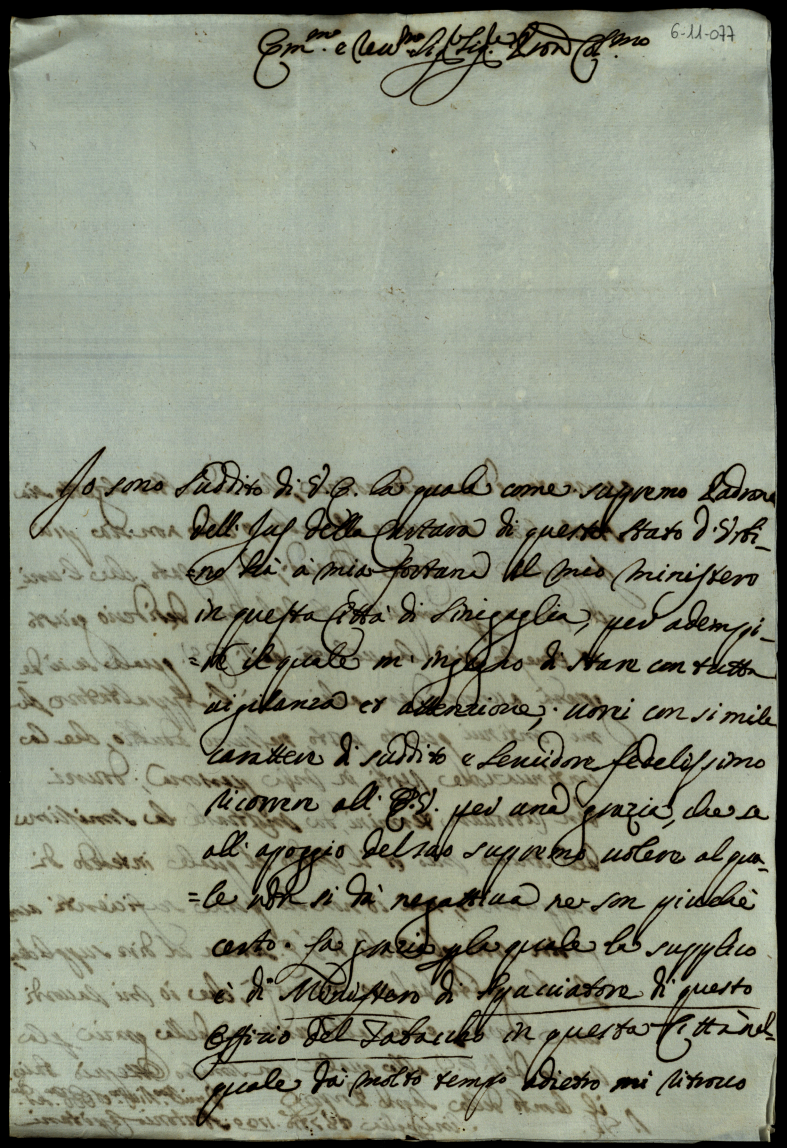 6-11-077
Em.mo e Reu.mo Sig.r Sig.r Pron Col.mo
Jo sono Suddito di V. E. la quale come supremo Padrone
dell' Jus della Cartara di questo stato d'Vrbi-
=no hà à mia fortuna il mio ministero
in questa Città di Sinigaglia, per adempi-
=re il quale m'ingegno di stare con tutta
vigilanza et attenzione, uorei con simile
carattere di suddito e Seruidore fedelissimo
ricorrere all' E. V. per una grazia, che se
all' apoggio del suo supremo uolere al qua-
=le non si dà negattiua ne son piucchè
certo. La grazia p la quale la supplico
è di Ministero di Spacciatore di questo
Officio del Tabaccho in questa Città nel
quale da molto tempo adietro mi ritrouo